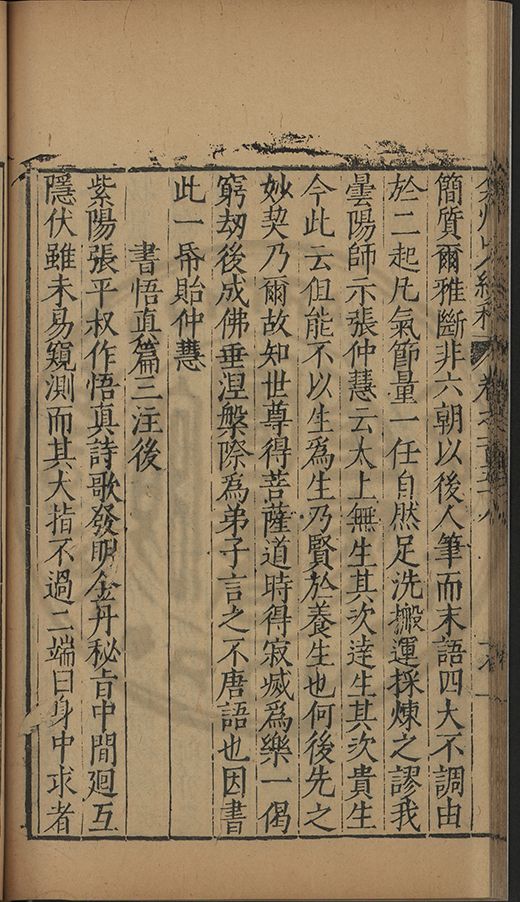 弇州山人續稿 卷之一百五十八
簡質爾雅斷非六朝以後人筆而末語四大不調由
於二起凡氣節量一任自然足洗搬運採煉之謬我
曇陽師示張仲慧云太上無生其次達生其次貴生
今此云但能不以生爲生乃賢於養生也何後先之
妙契乃爾故知世尊得菩薩道時得寂滅爲樂一偈
窮劫後成佛垂涅槃際爲弟子言之不唐語也因書
此一帋貽仲慧
書悟真篇三注後
紫陽張平叔作悟真詩歌發明金丹秘旨中間廻互
隱伏雖未易窺測而其大指不過二端曰身中求者